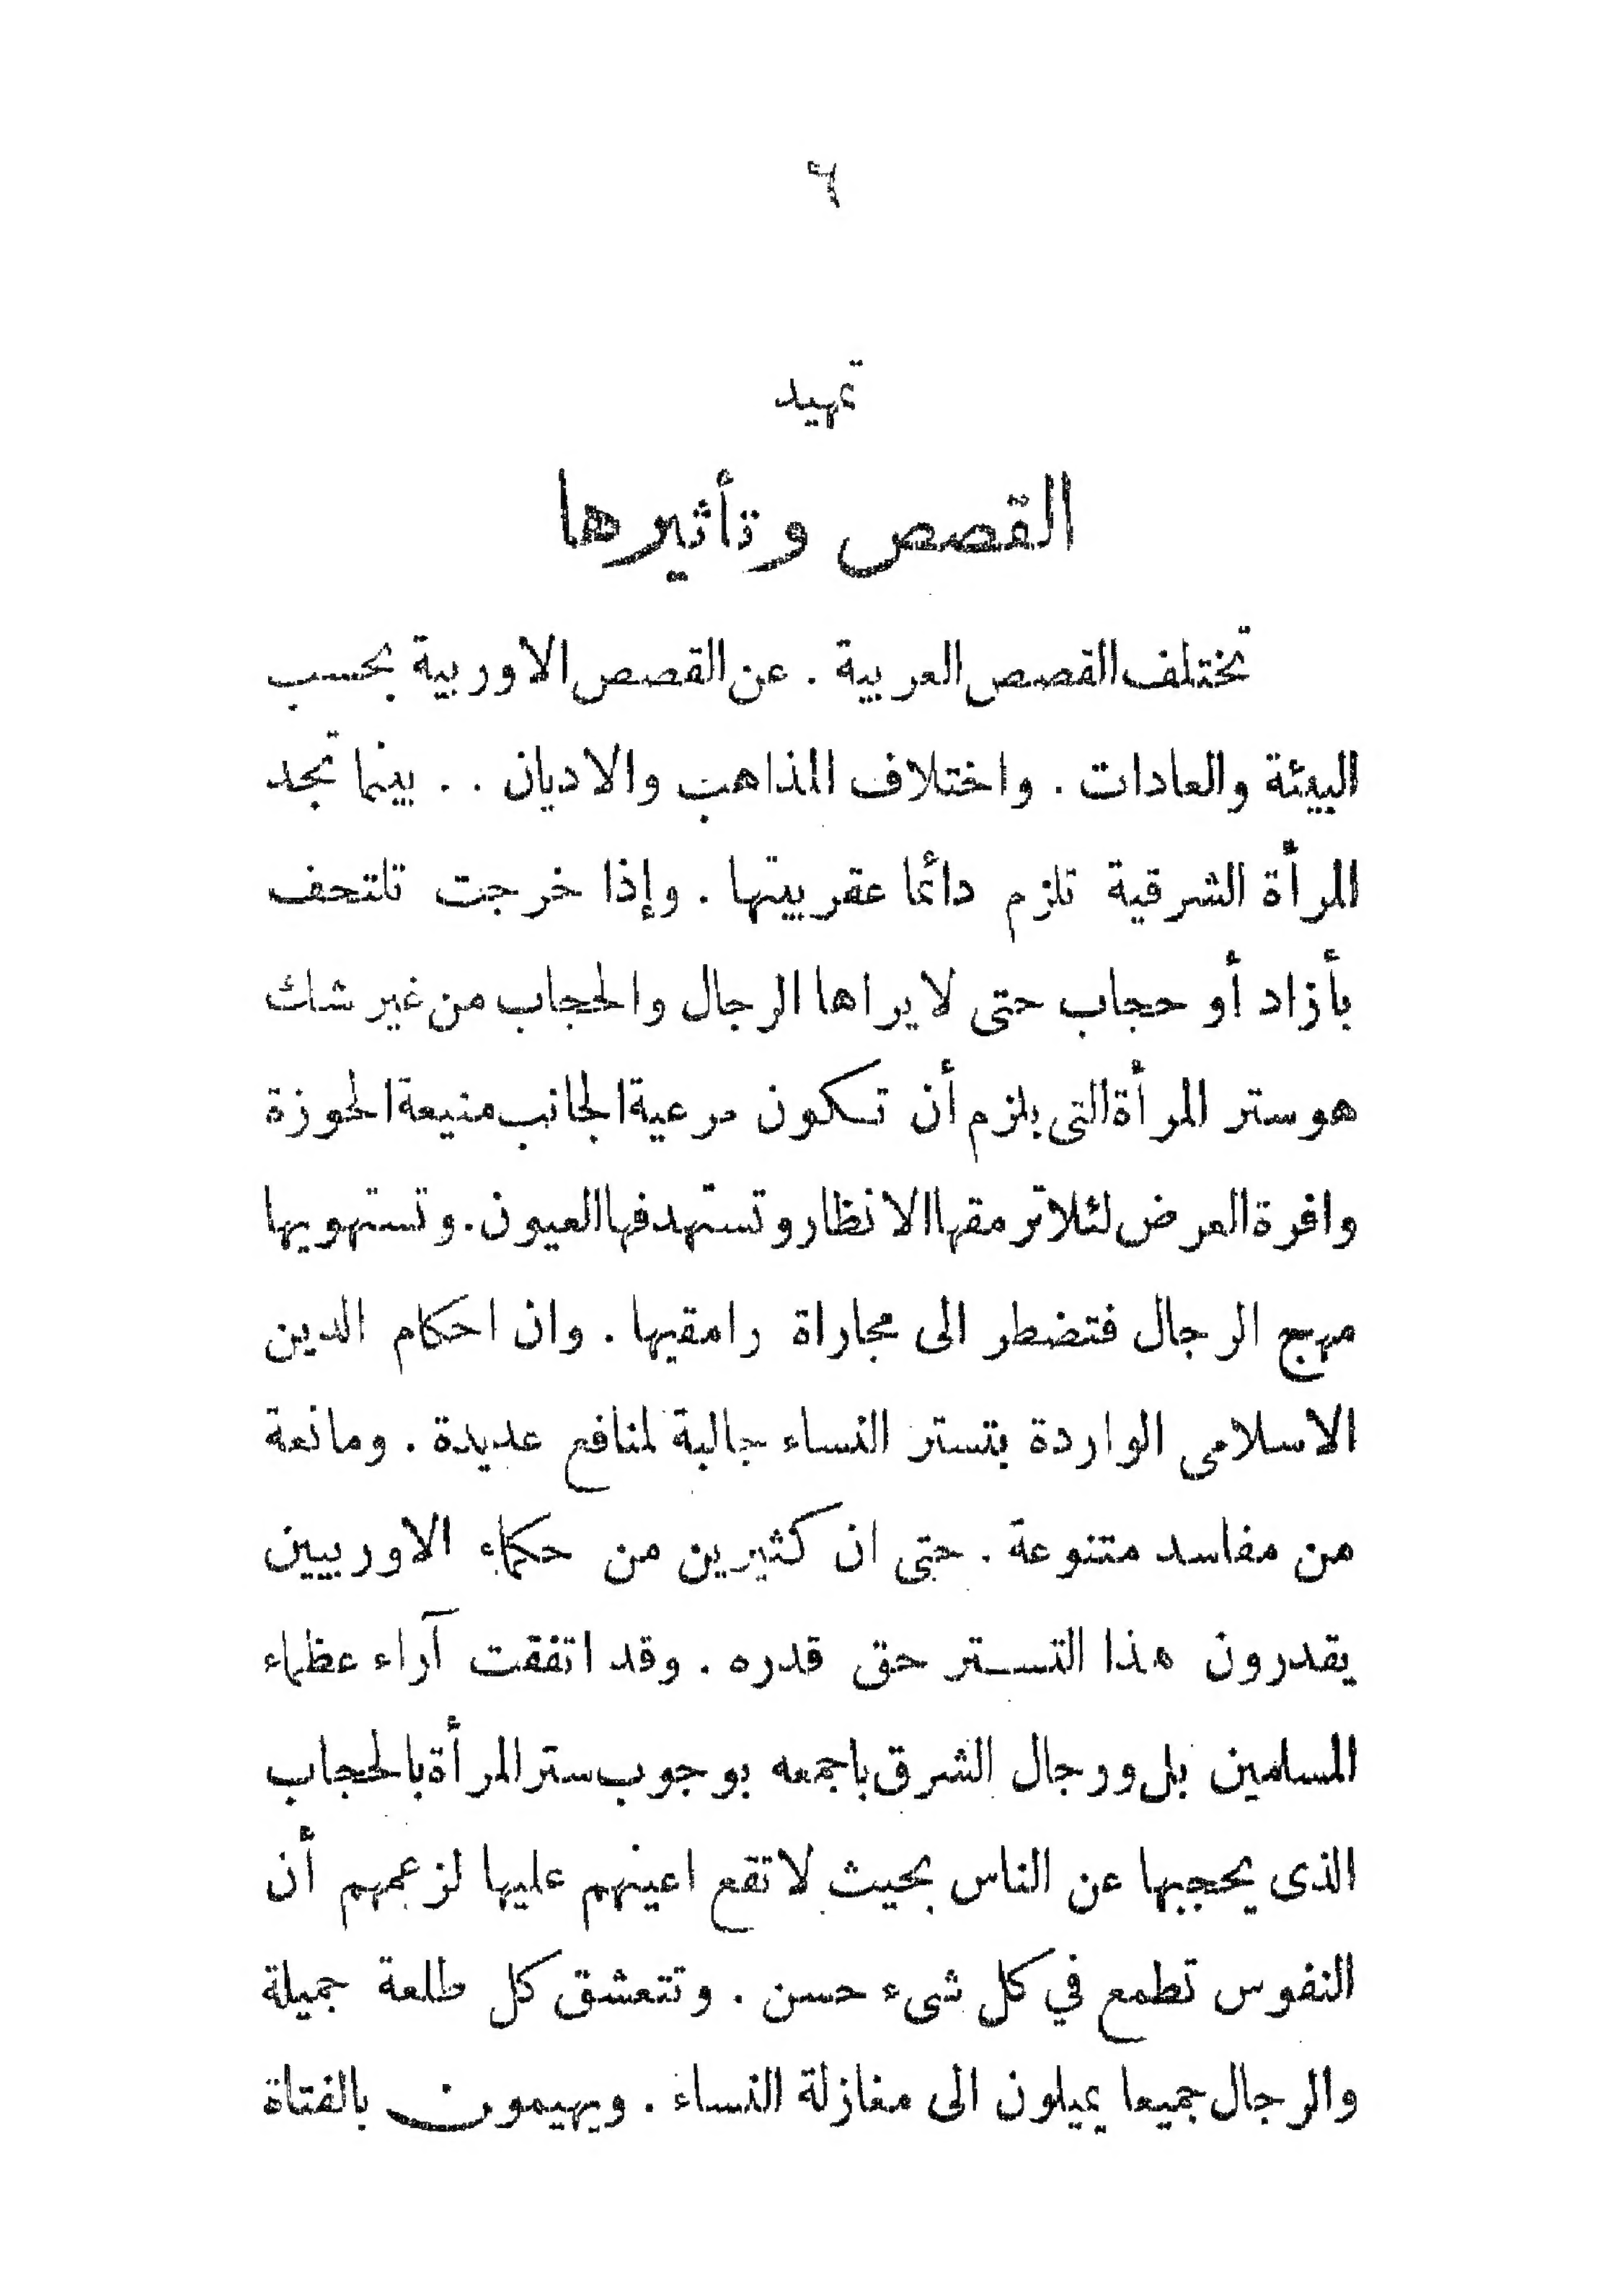 ٦
تمهيد
القصص وتأثيرها
تختلف القصص العربية . عن القصص الاوربية بحسب
البيئة والعادات . واختلاف المذاهب والاديان . . بينما تجد
المرأة الشرقية تلزم دائما عقر بيتها . وإذا خرجت تلتحف
بأزاد أو حجاب حتى لا يراها الرجال والحجاب من غير شك
هو ستر المرأة التى يلزم أن تكون مرعية الجانب منيعة الحوزة
وافرة العرض لئلا ترمقها الانظار وتستهدفها العيون . وتستهويها
مهج الرجال فتضطر الى مجاراة رامقيها . وان احكام الدين
الاسلامى الواردة بتستر النساء جالبة لمنافع عديدة . ومانعة
من مفاسد متنوعة . حتى ان كثيرين من حكماء الاوربيين
يقدرون هذا التستر حق قدره . وقد اتفقت آراء عظماء
المسلمين بل ورجال الشرق باجمعه بوجوب ستر المرأة بالحجاب
الذى يحجبها عن الناس بحيث لا تقع اعينهم عليها لزعمهم أن
النفوس تطمع في كل شىء حسن . وتتعشق كل طلعة جميلة
والرجال جميعا يميلون الى مغازلة النساء . ويهيمون بالفتاة